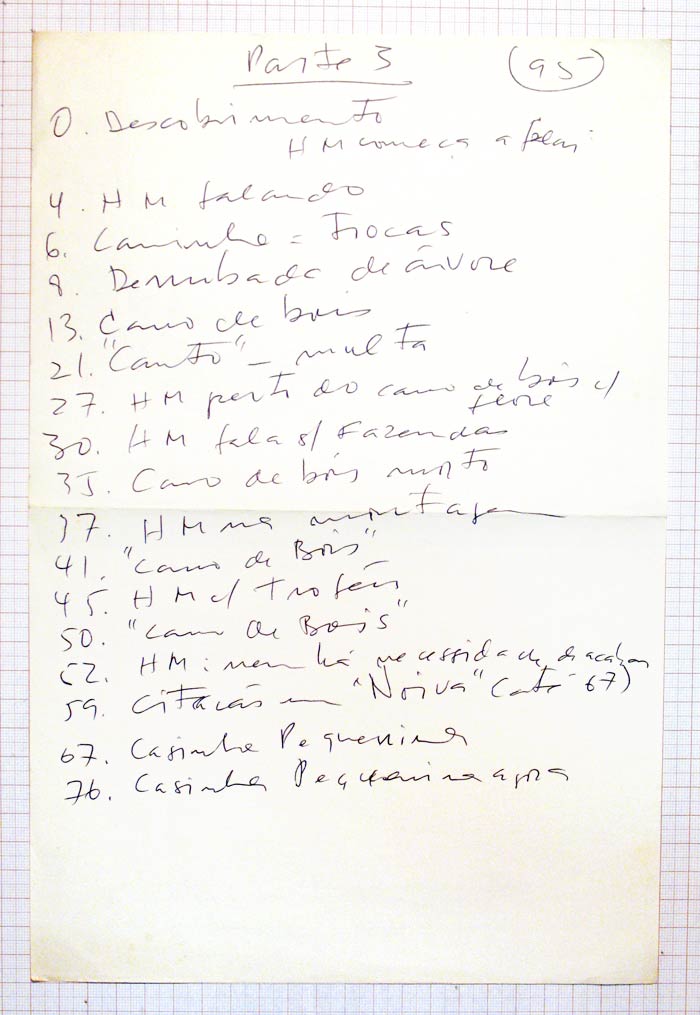 Parte 3 (95)
0. Descobrimento
HM começa a falar
4. HM falando
6. Caminho = Trocas
8. Derrubada de árvore
13. Carro de bois
21. "Canto" - multa
27. HM perto do carro de bois c/
30. HM fala s/ Fazendas
35. Carro de bois morto
37. HM na montagem
41. "Carro de Bois"
45. HM c/ Troféu
50. "Carro de Bois"
52. HM: nem há necessidade de acabar
59. Citação em "Noiva" (até 67)
67. Casinha Pequenina
76. Casinha Pequenina agora